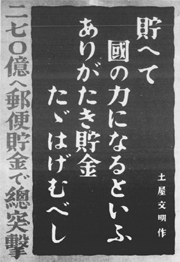 貯へて
國の力になるといふ
ありがたき貯金
たゞはげむべし
土屋文明作
二七〇億へ郵便貯金で總突擊